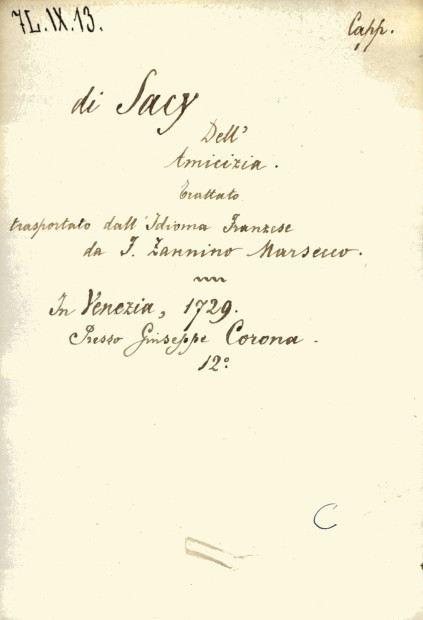 7L.IX.13.
Capp.
di Sacy
Dell'
Amicizia.
Trattato
trasportato dall'Idioma Franzese
da F. Zannino Marsecco.
In Venezia, 1729.
Presso Giuseppe Corona.
12º
C